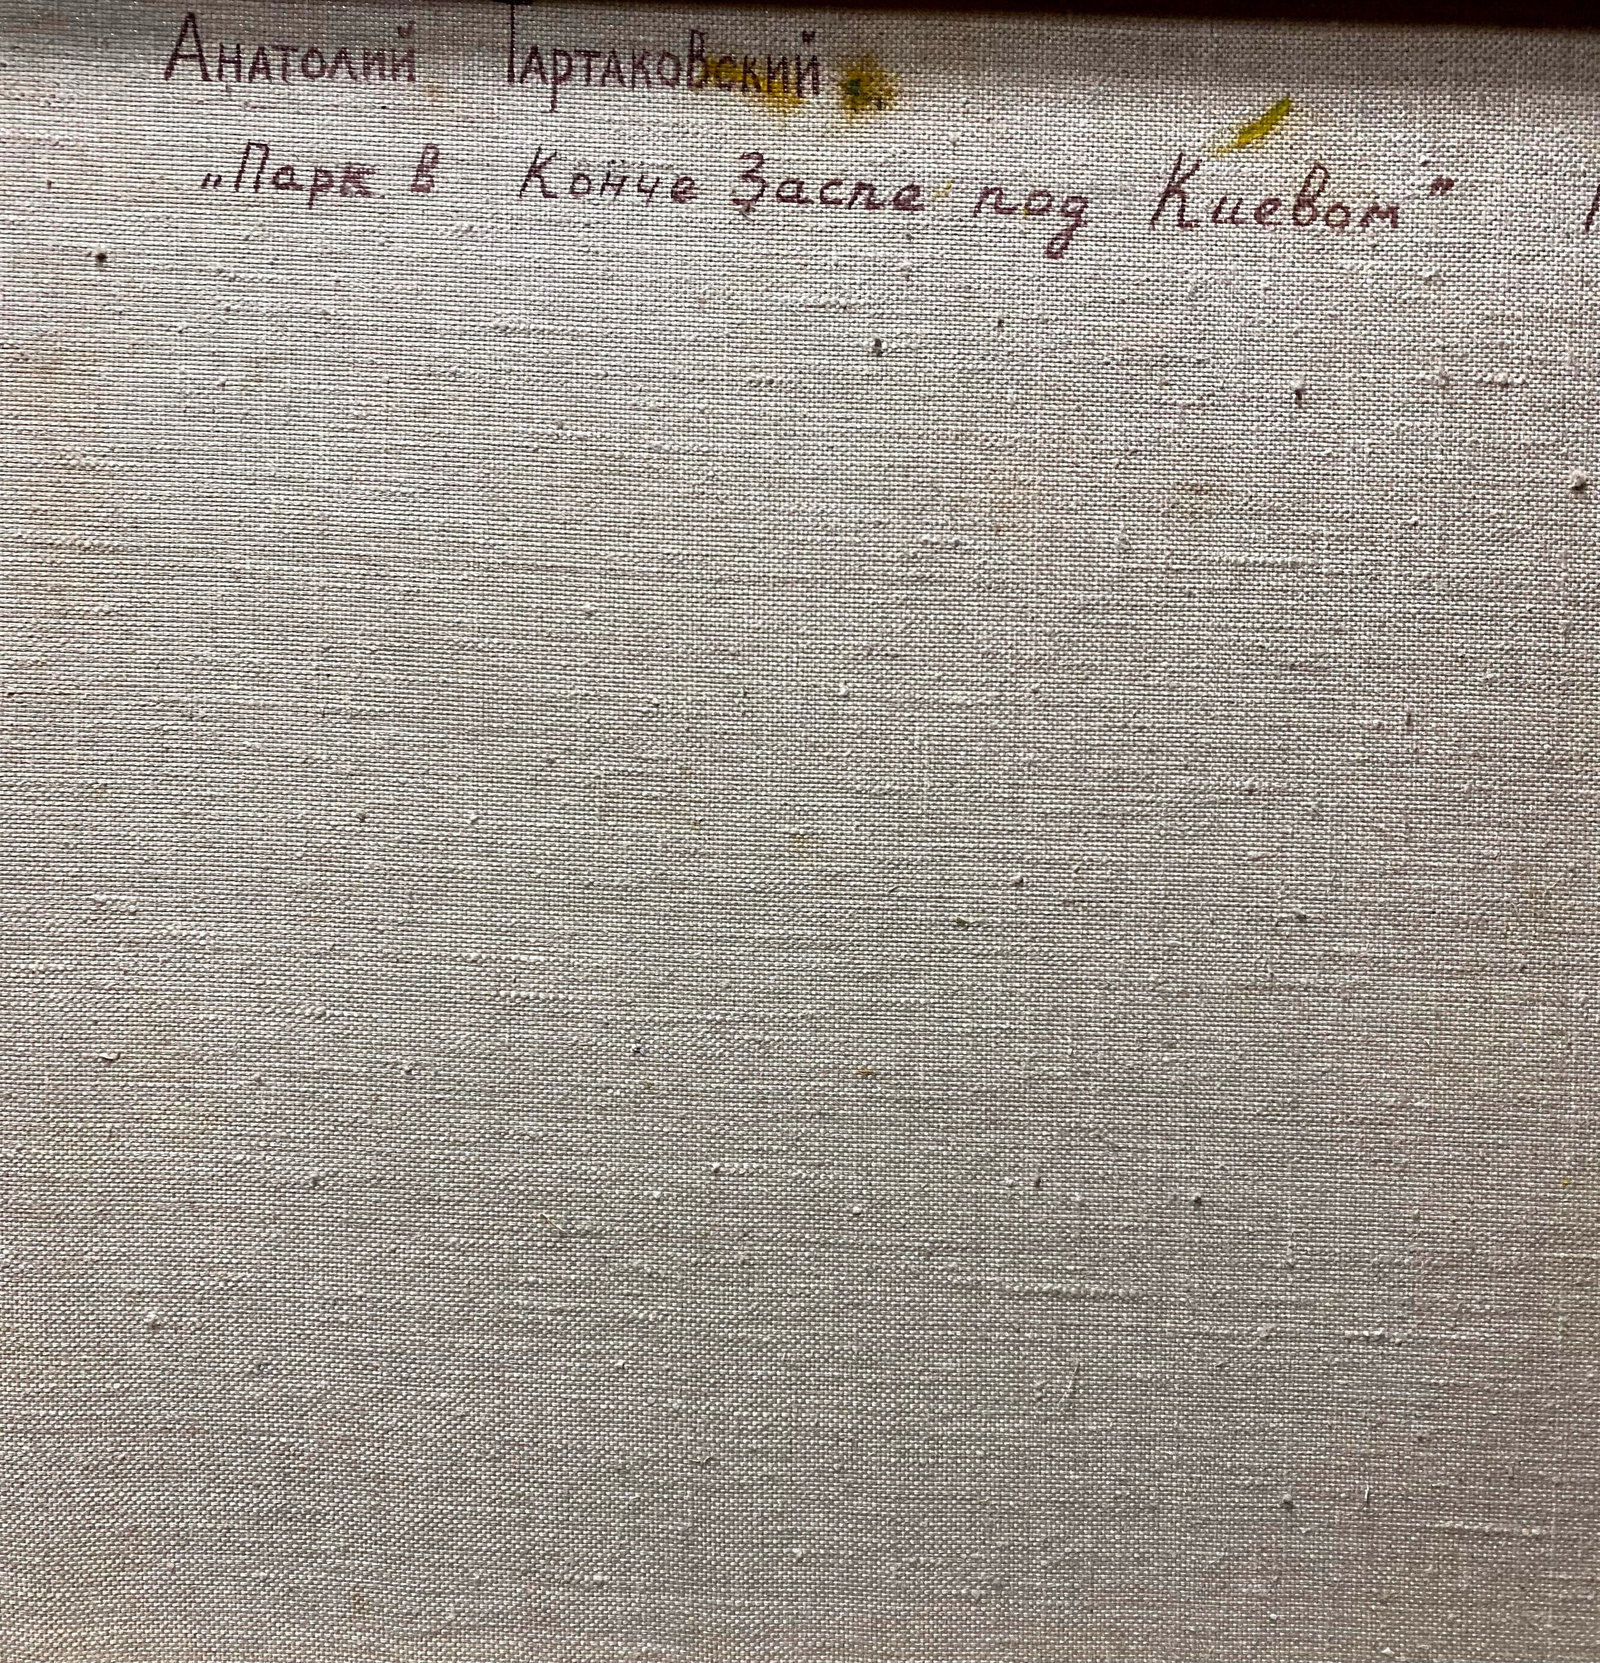 Анатолий Тартаковский
„Парк в Конче Заспе под Киевом"